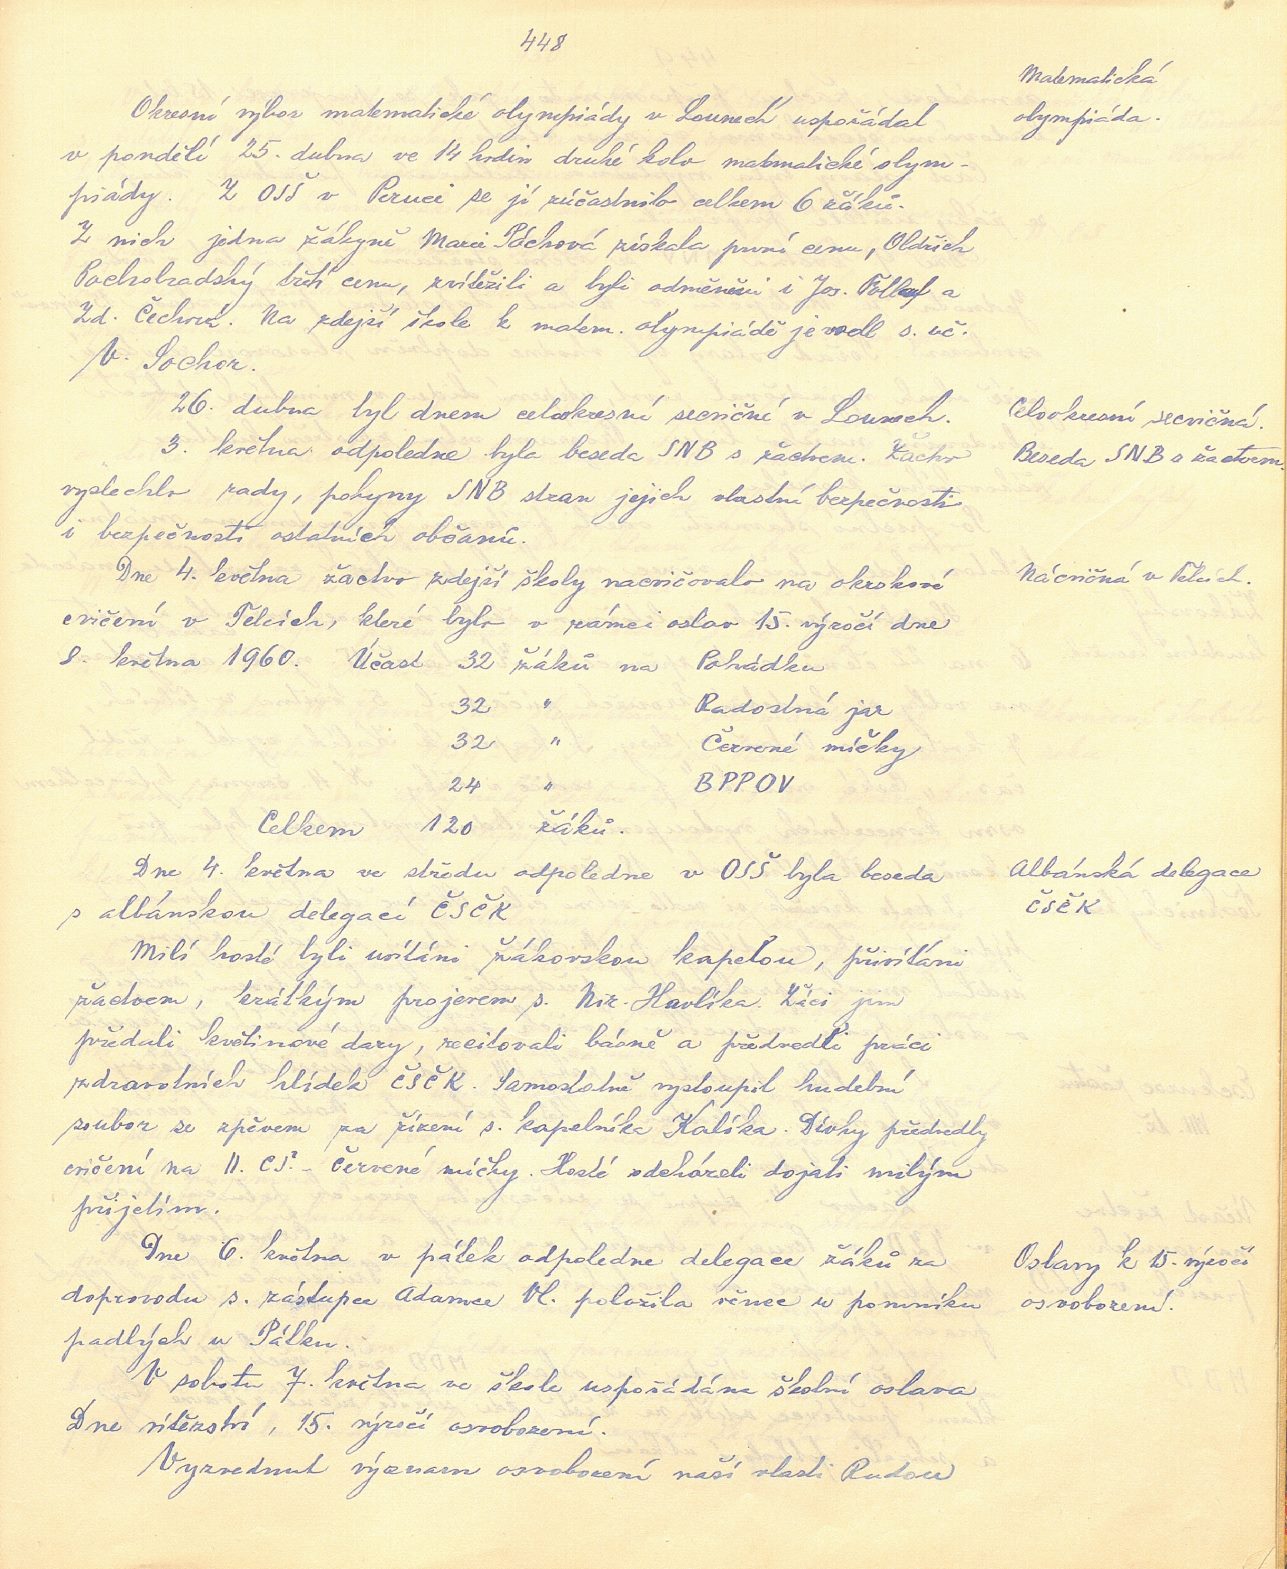 448
Matematická
olympiáda.
Okresní výbor matematické olympiády v Lounech uspořádal
v pondělí 25. dubna ve 14 hodin druhé kolo matematické olym-
piády. Z OSŠ v Peruci se jí zúčastnilo celkem 6 žáků.
Z nich jedna žákyně Marie Páchová získala první cenu, Oldřich
Pochobradský třetí cenu, zvítězili a byli odměněni i Jos. a
Zd. Čechová. Na zdejší škole k matem. olympiádě je vedl s. uč.
V. Sochor.
26. dubna byl dnem celookresní secvičné v Lounech.
Celookresní secvičná.
3. května odpoledne byla beseda SNB s žactvem. Žactvo
Beseda SNB s žactvem.
vyslechlo rady, pokyny SNB stran jejich vlastní bezpečnosti
i bezpečnosti ostatních občanů.
Dne 4. května žactvo zdejší školy nacvičovalo na okrskové
Nácvičná v Telcích.
cvičení v Telcích, které bylo v rámci oslav 15. výročí dne
8. května 1960. Účast 32 žáků na Pohádku
32 " Radostná jar
32 " Červené míčky
24 " BPPOV
Celkem 120 žáků.
Dne 4. května ve středu odpoledne v OSŠ byla beseda
Albánská delegace
s albánskou delegací ČSČK
ČSČK
Milí hosté byli uvítáni žákovskou kapelou, přivítáni
žactvem, krátkým projevem s. řid. Havlíka. Žáci jim
předali květinové dary, recitovali básně a předvedli práci
zdravotních hlídek ČSČK. Samostatně vystoupil hudební
soubor se zpěvem za řízení s. kapelníka Kalíka. Dívky předvedly
cvičení na II. CS. - Červené míčky. Hosté odcházeli dojati milým
přijetím.
Dne 6. května v pátek odpoledne delegace žáků za
Oslavy k 15. výročí
doprovodu s. zástupce Adamce Vl. položila věnec u pomníku
osvobození.
padlých u Pátku.
V sobotu 7. května ve škole uspořádána školní oslava
Dne vítězství, 15. výročí osvobození.
Vyzvednut význam osvobození naší vlasti Rudou